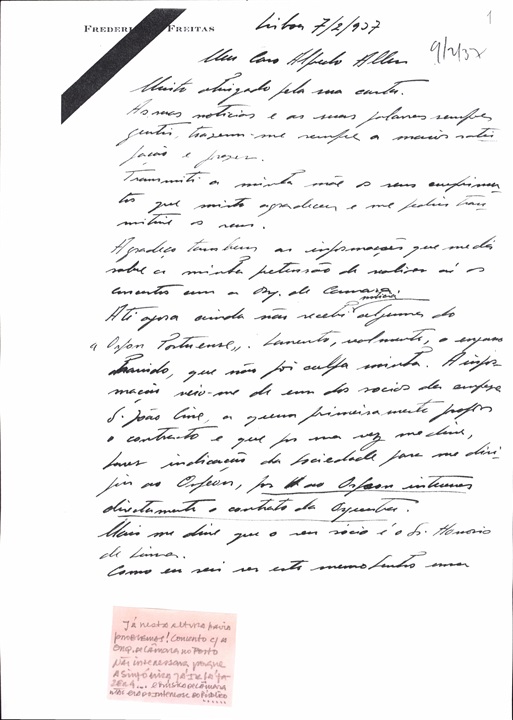 FREDERI FREITAS
Lisboa 7/2/937
1
9/2/37
Meu Caro Alfredo Allen
Muito obrigado pela sua carta.
As suas noticias e as suas palavras sempre
gentis, trazem-me sempre a maior satis
fação e prazer.
Transmiti a minha mãe os seus cumprimen
tos que muito agradeceu e me pediu trans
mitisse os seus.
Agradeço tambem as informações que me dá
sobre a minha pretensão de realizar ai os
concertos com a Orq. de Camara.
Até agora ainda não recebi noticias algumas do
Orfeon Portuense". Lamento, realmente, o engano
havido, que não foi culpa minha. A infor
mação veio-me de um dos socios da empresa
S. João Cine, a quem primeiramente propus
o contracto e que por sua vez me disse,
haver indicação da Sociedade para me diri
gir ao Orfeon, por ao Orfeon interessar
directamente o contrato da Orquestra.
Mais me disse que o seu socio é o Sr. Honorio
de Lima.
Como eu sei ser este
Já nesta altura havia
problemas! Concerto c/ a
Orq. de Câmara no Porto
não interessava porque
a sinfónica já lá
e música de câmara
não era de interesse do Público